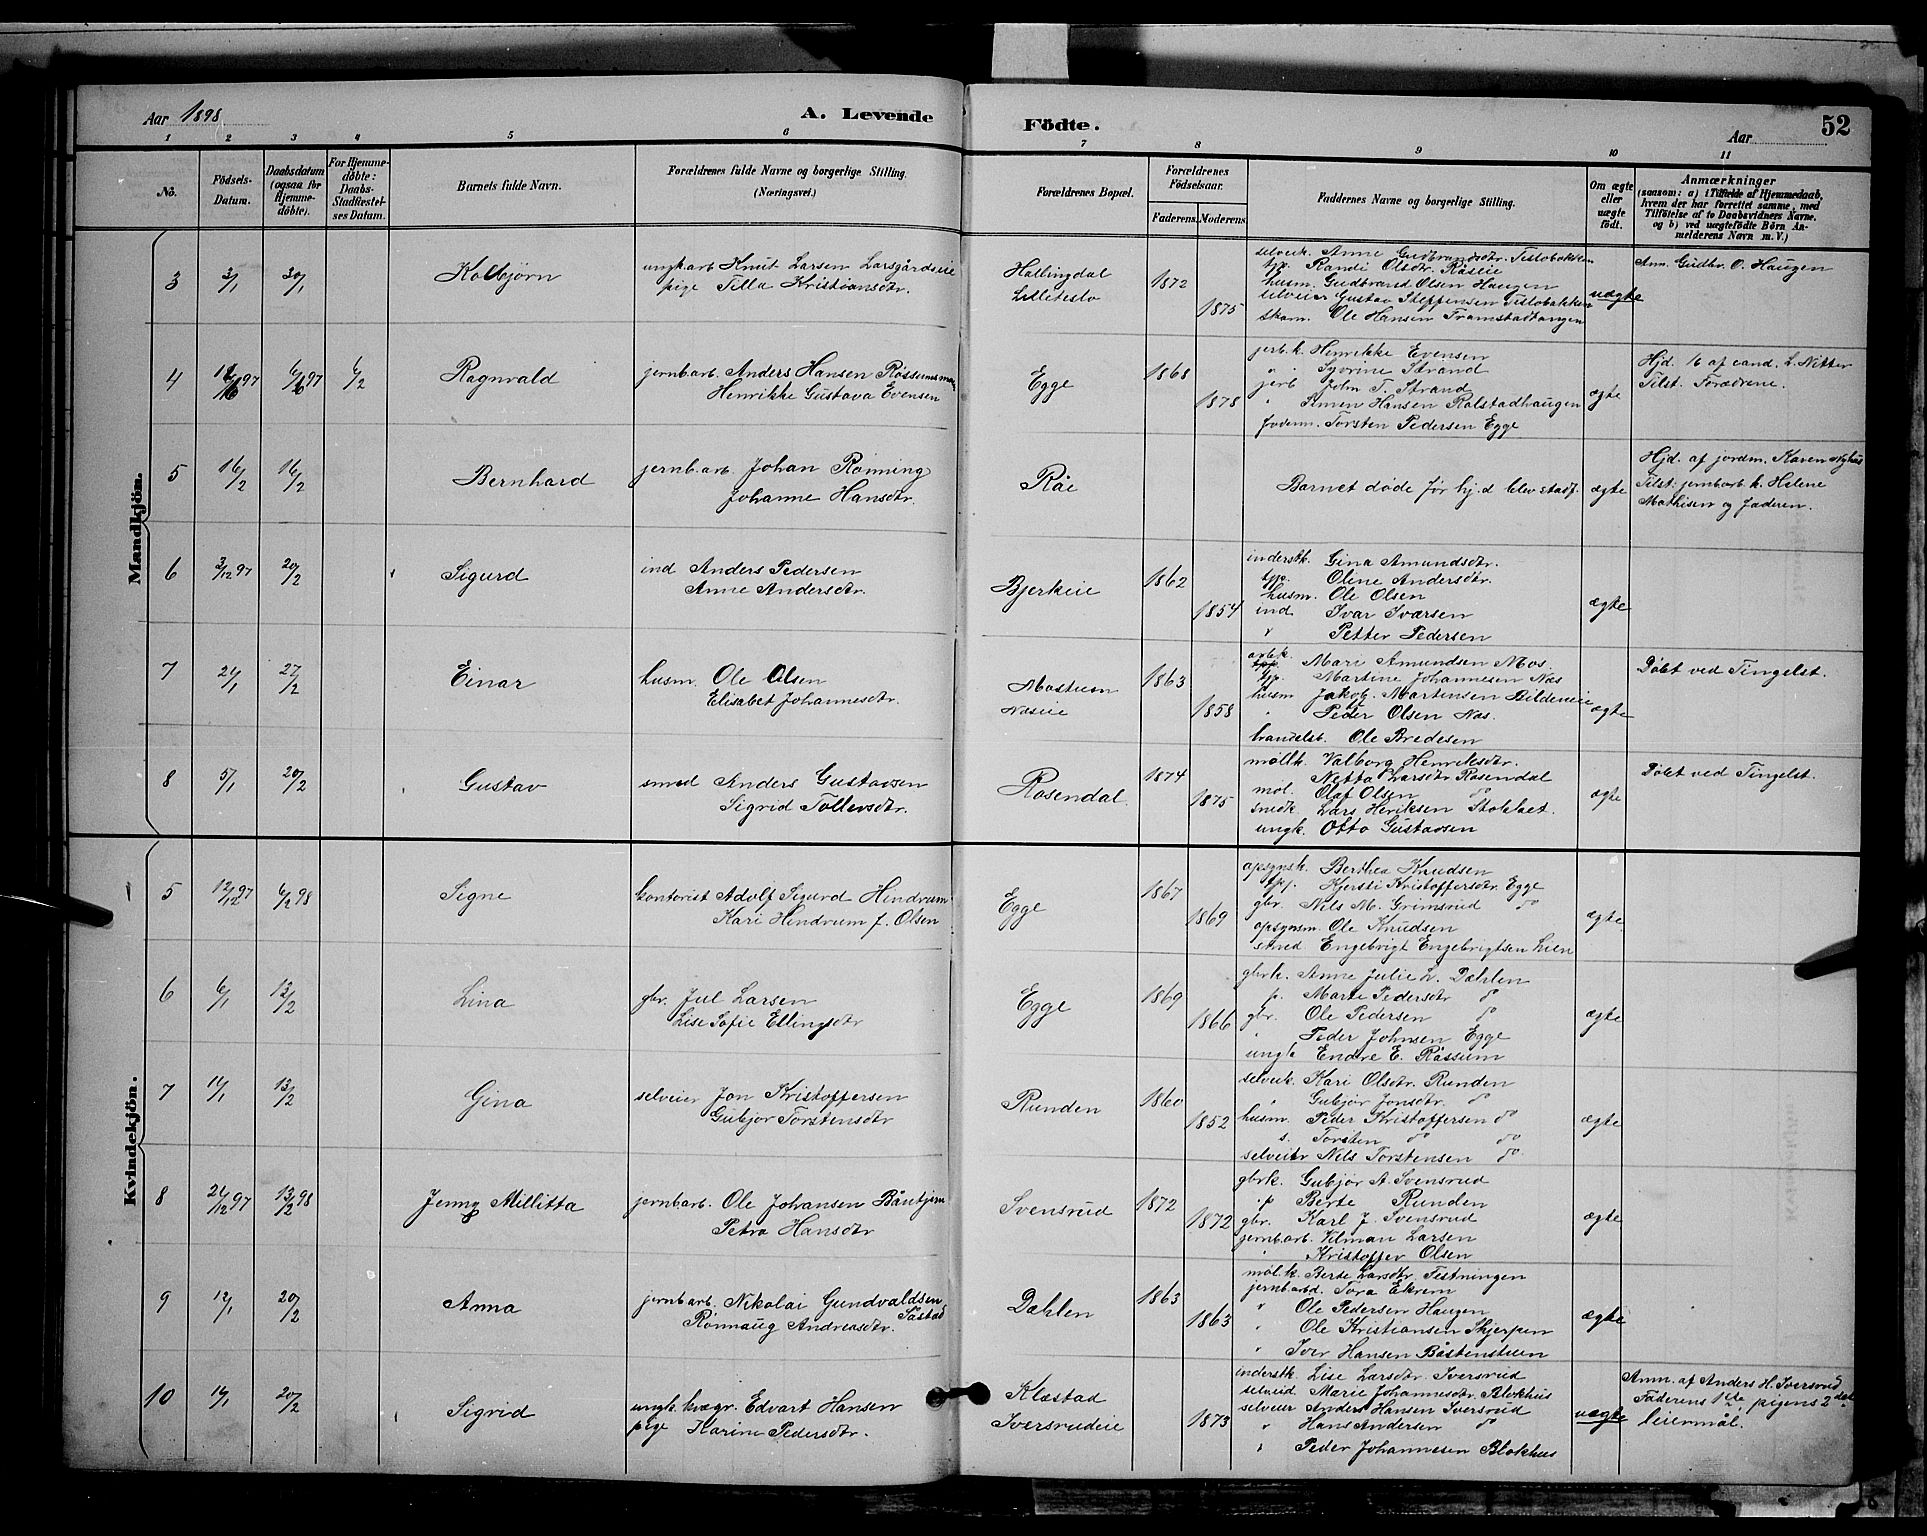 Aar 1898 A. Levende Fødte. Aar 52
1 2 3 4 5 6 7 8 9 10 11
No. Fødsels-Datum. Daabsdatum (ogsaa for Hjemme-døbte). For Hjemme-døbte: Daabs-Stadfæstel-ses Datum. Barnets fulde Navn. Forældrenes fulde Navne og borgerlige Stilling. (Næringsvei.) Forældrenes Bopæl. Forældrenes Fødselsaar. Faderens. Moderens. Faddernes Navne og borgerlige Stilling. Om ægte eller uægte født. Anmærkninger (saasom: a) i Tilfælde af Hjemmedaab, hvem der har forrettet samme, med Tilføielse af to Daabsvidners Navne, og b) ved uægtefødte Børn An-melderens Navn m. V.)
Mandkjön.
3 3/1 30/1 Kolbjørn
ungk. arb. Knut Larsen Larsgårdseie
pige Tilla Kristiansdtr.
Hallingdal
Lilleteslo
1872
1875
selveik. Anne Gudbrandsdtr. Teslobakken
tjp. Randi Olsdtr. Råseie
husm. Gudbrand Olsen Haugen
selveier Gustav Steffensen Teslobakken
skom. Ole Hansen Framstadtangen
uægte
Anm. Gudbr. O. Haugen
4 6/2 Ragnvald
jernbarb. Anders Hansen
Henrikke Gustava Evensen
Egge
1868
1878
jerb. k. Henrikke Evensen
" " Syvrine Strand
jerb John T. Strand
" Simen Hansen Rølstadhaugen
Torsten Pedersen Egge
ægte
Hjd. 1/6 af cand. L. Nitter
Tilst. Forædrene.
5 16/2 16/2 Bernhard
jernb. arb. Johan Rønning
Johanne Hansdtr.
Råe
Barnet døde før hj. d blev stadf.
ægte
Hjd. af jordm. Karen Nyhus
Tilst. jernbarb. k. Helene
Mathisen og Faderen.
6 3/12 97 20/2 Sigurd
ind Anders Pedersen
Anne Andersdtr.
Bjerkeie
1862
1854
inderstk. Gina Amundsdtr.
tjp. Olene Andersdtr.
husm. Ole Olsen
ind Ivar Ivarsen
" Petter Pedersen
ægte
7 24/1 27/2 Einar
husm. Ole Olsen
Elisabet Johannesdtr.
Mostuen
Næseie
1863
1858
arbk. Mari Amundsen Mos.
tjp. Martine Johannesen Næs
husm Jakob Martinsen Bildeneie
" Peder Olsen Næs.
handelsb. Ole Bredesen
ægte
Døbt ved Tingelst.
8 5/1 20/2 Gustav
smed Anders Gustavsen
Sigrid Tollevsdtr.
Rosendal.
1874
1875
møllk. Valborg Henriksdtr.
Netta Larsdtr Rosendal
møl. Olaf Olsen do
snedk Lars Henriksen
ungk. Otto Gustavsen
ægte
Døbt ved Tingelst.
Kvindekjön.
5 12/12 97 6/2 98 Signe
kontorist Adolf Sigurd Hindrum
Kari Hindrum f. Olsen
Egge
1867
1869
opsynsk. Berthea Knudsen
tjp. Kjersti Kristoffersdtr. Egge
gbr. Nils M. Grimsrud do
opsynsm. Ole Knudsen
smed Engebrigt Engebrigtsen Lien
ægte
6 6/1 13/2 Lina
gbr. Jul Larsen
Lise Sofie Ellingsdtr
Egge
1869
1866
gbrk. Anne Julie L. Dæhlen
p. Marte Pedersdtr do
gbr. Ole Pedersen do
" Peder Johnsen Egge
ungk Endre E. Røssum
ægte
7 11/1 13/2 Gina
selveier Jon Kristoffersen
Gubjør Torstensdtr
Runden
1860
1852
selveik. Kari Olsdtr. Runden
" Gubjør Jonsdtr. do
husm. Peder Kristoffersen do
s. Torsten do do
selveier Nils Torstensen do.
ægte
8 21/12 97 13/2 98 Jenny Millitta
jernbarb. Ole Johansen
Petra Hansdtr
Svensrud
1872
1872
gbrk. Gubjør A. Svensrud
p Berte Runden
gbr. Karl J. Svensrud
jernb. arb. Vilman Larsen
" Kristoffer Olsen
ægte
9 12/1 20/2 Anna
jernb. arb. Nikolai Gundvaldsen
Rønnaug Andreasdtr.
Dæhlen
1863
1863
møl. k. Berte Larsdtr. Festningen
jernb. arbd. Tora Ekrem
" Ole Pedersen Haugen
" Ole Kristiansen Skjerpen
" Iver Hansen Båstenstuen
ægte
10 14/1 20/2 Sigrid
ungk. kvægr. Edvart Hansen
pige Karine Pedersdtr.
Klæstad
Iversrudeie
1873
inderstk. Lise Larsdtr. Iversrud
selveid. Marie Johannesdtr. Blokhus
selveier Anders Hansen Iversrud
" Hans Andersen do
" Peder Johannesen Blokhus
uægte
Anm. af Anders H. Iversrud
Faderens 1ste pigens 2det
leiermål.